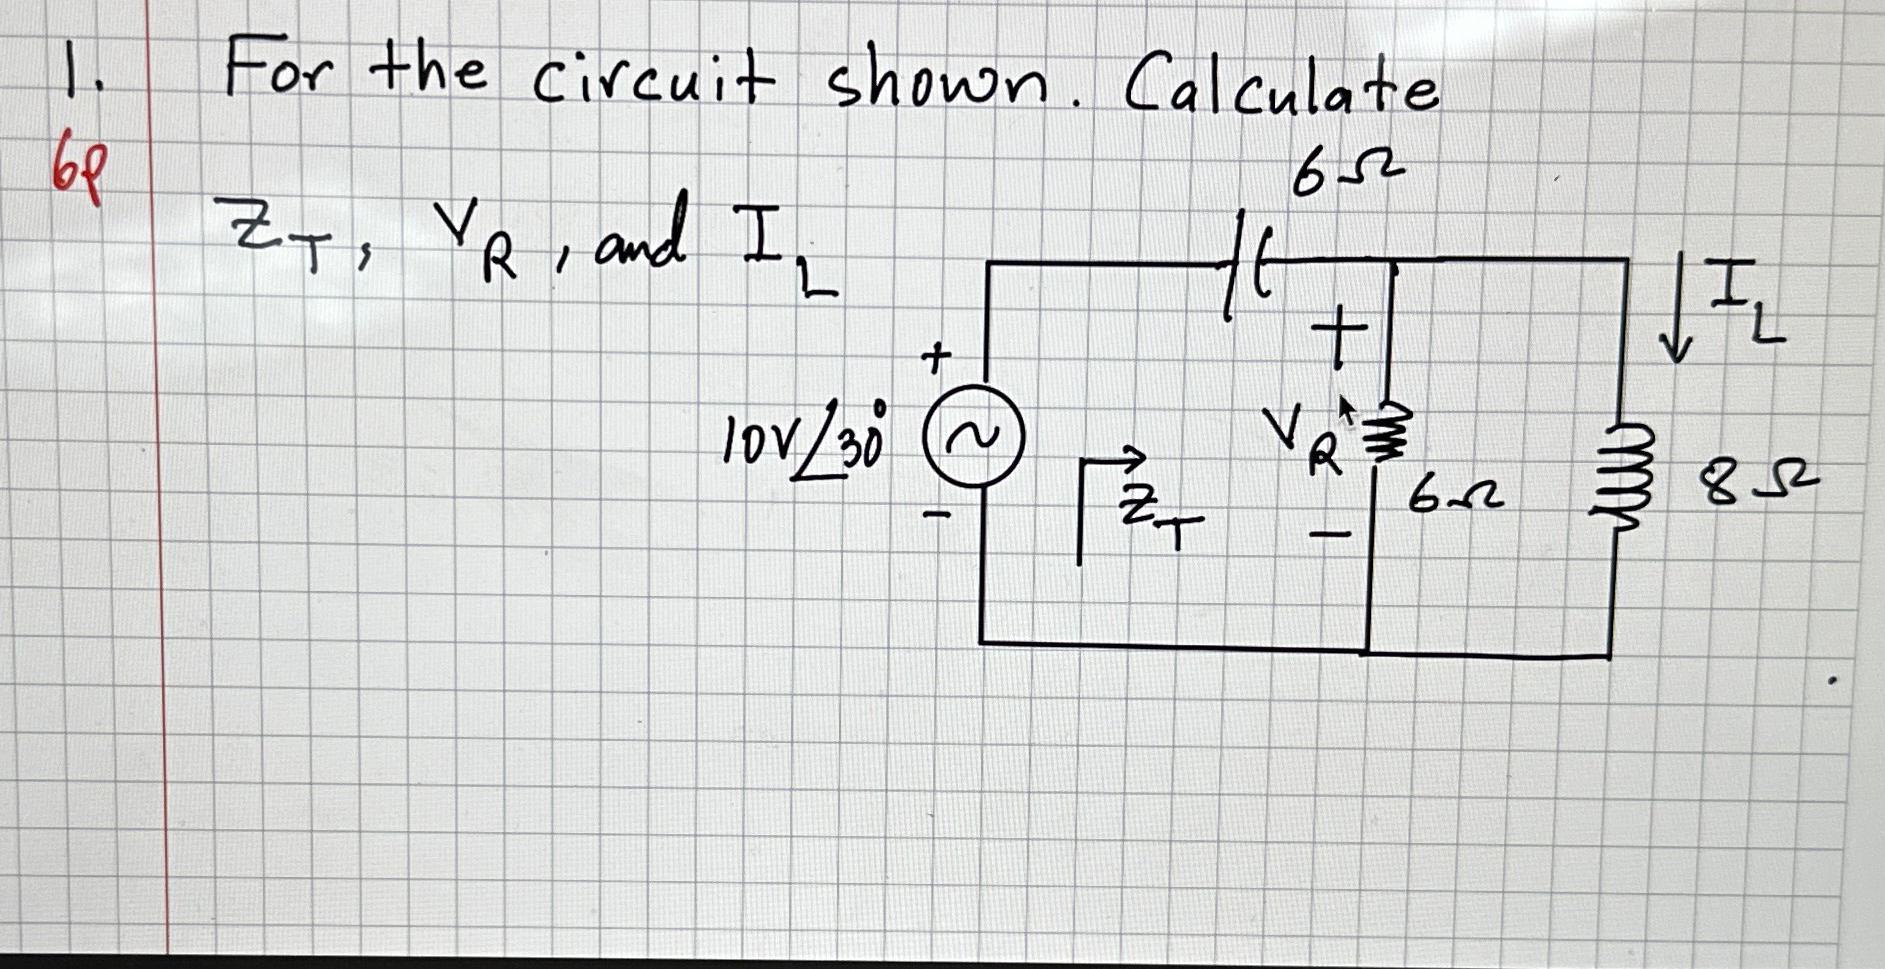 1. For the circuit shown. Calculate
6p
Z_T, V_R, and I_L
6Ω
I_L
+
+
10V∠30°
V_R
6Ω
8Ω
Z_T
-
-